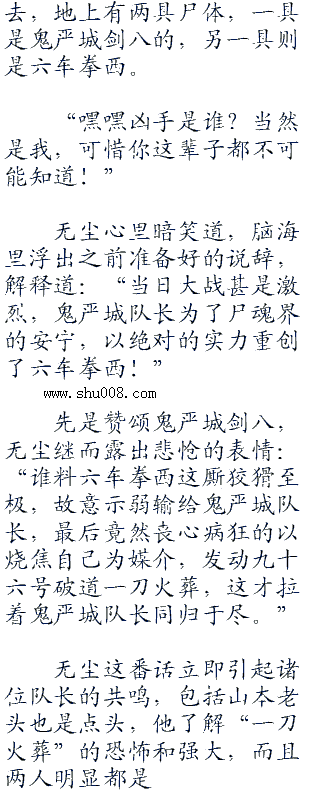 去，地上有两具尸体，一具
是鬼严城剑八的，另一具则
是六车拳西。
“嘿嘿凶手是谁？当然
是我，可惜你这辈子都不可
能知道！”
无尘心里暗笑道，脑海
里浮出之前准备好的说辞，
解释道：“当日大战甚是激
烈，鬼严城队长为了尸魂界
的安宁，以绝对的实力重创
了六车拳西！”
www.shu008.com
先是赞颂鬼严城剑八，
无尘继而露出悲怆的表情：
“谁料六车拳西这厮狡猾至
极，故意示弱输给鬼严城队
长，最后竟然丧心病狂的以
烧焦自己为媒介，发动九十
六号破道一刀火葬，这才拉
着鬼严城队长同归于尽。”
无尘这番话立即引起诸
位队长的共鸣，包括山本老
头也是点头，他了解“一刀
火葬”的恐怖和强大，而且
两人明显都是